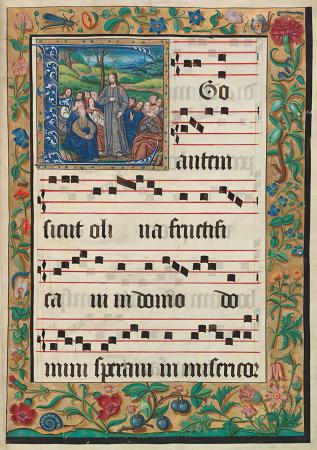 Go
autem
sicut oli ua fructifi
ca ui in domo do
mini speraui in misericor